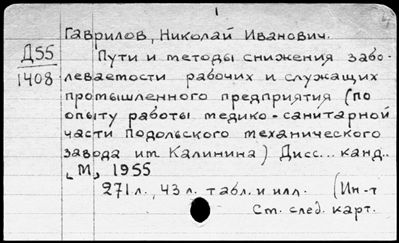 1
Гаврилов, Николай Иванович.
Д55
1408
Пути и методы снижения забо-
леваемости рабочих и служащих
промышленного предприятия (по
опыту работы медико-санитарной
части Подольского механического
завода им. Калинина) Дисс... канд..
М., 1955
271 л., 43 л. табл. и илл. (Ин-т
См. след. карт.